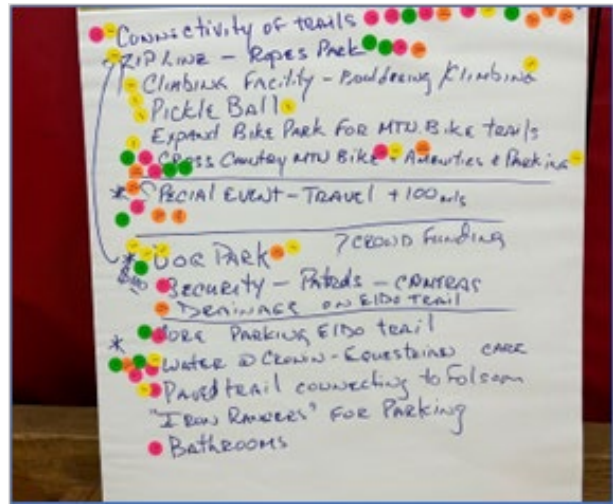 Connectivity of Trails
Zip Line - Ropes Park
Climbing Facility - Bouldering/Climbing
Pickle Ball
Expand Bike Park for Mtn. Bike trails
Cross Country Mtn Bike + Amenities & Parking
* Special Event - Travel + 100 mls
? Crowd Funding
* Dog Park
Security - Patrols -
Drainage on ElDo Trail
More Parking ElDo trail
* Water @ Crown - Equestrian Care
Paved trail connecting to Folsom
"Iron Rangers" for Parking
Bathrooms